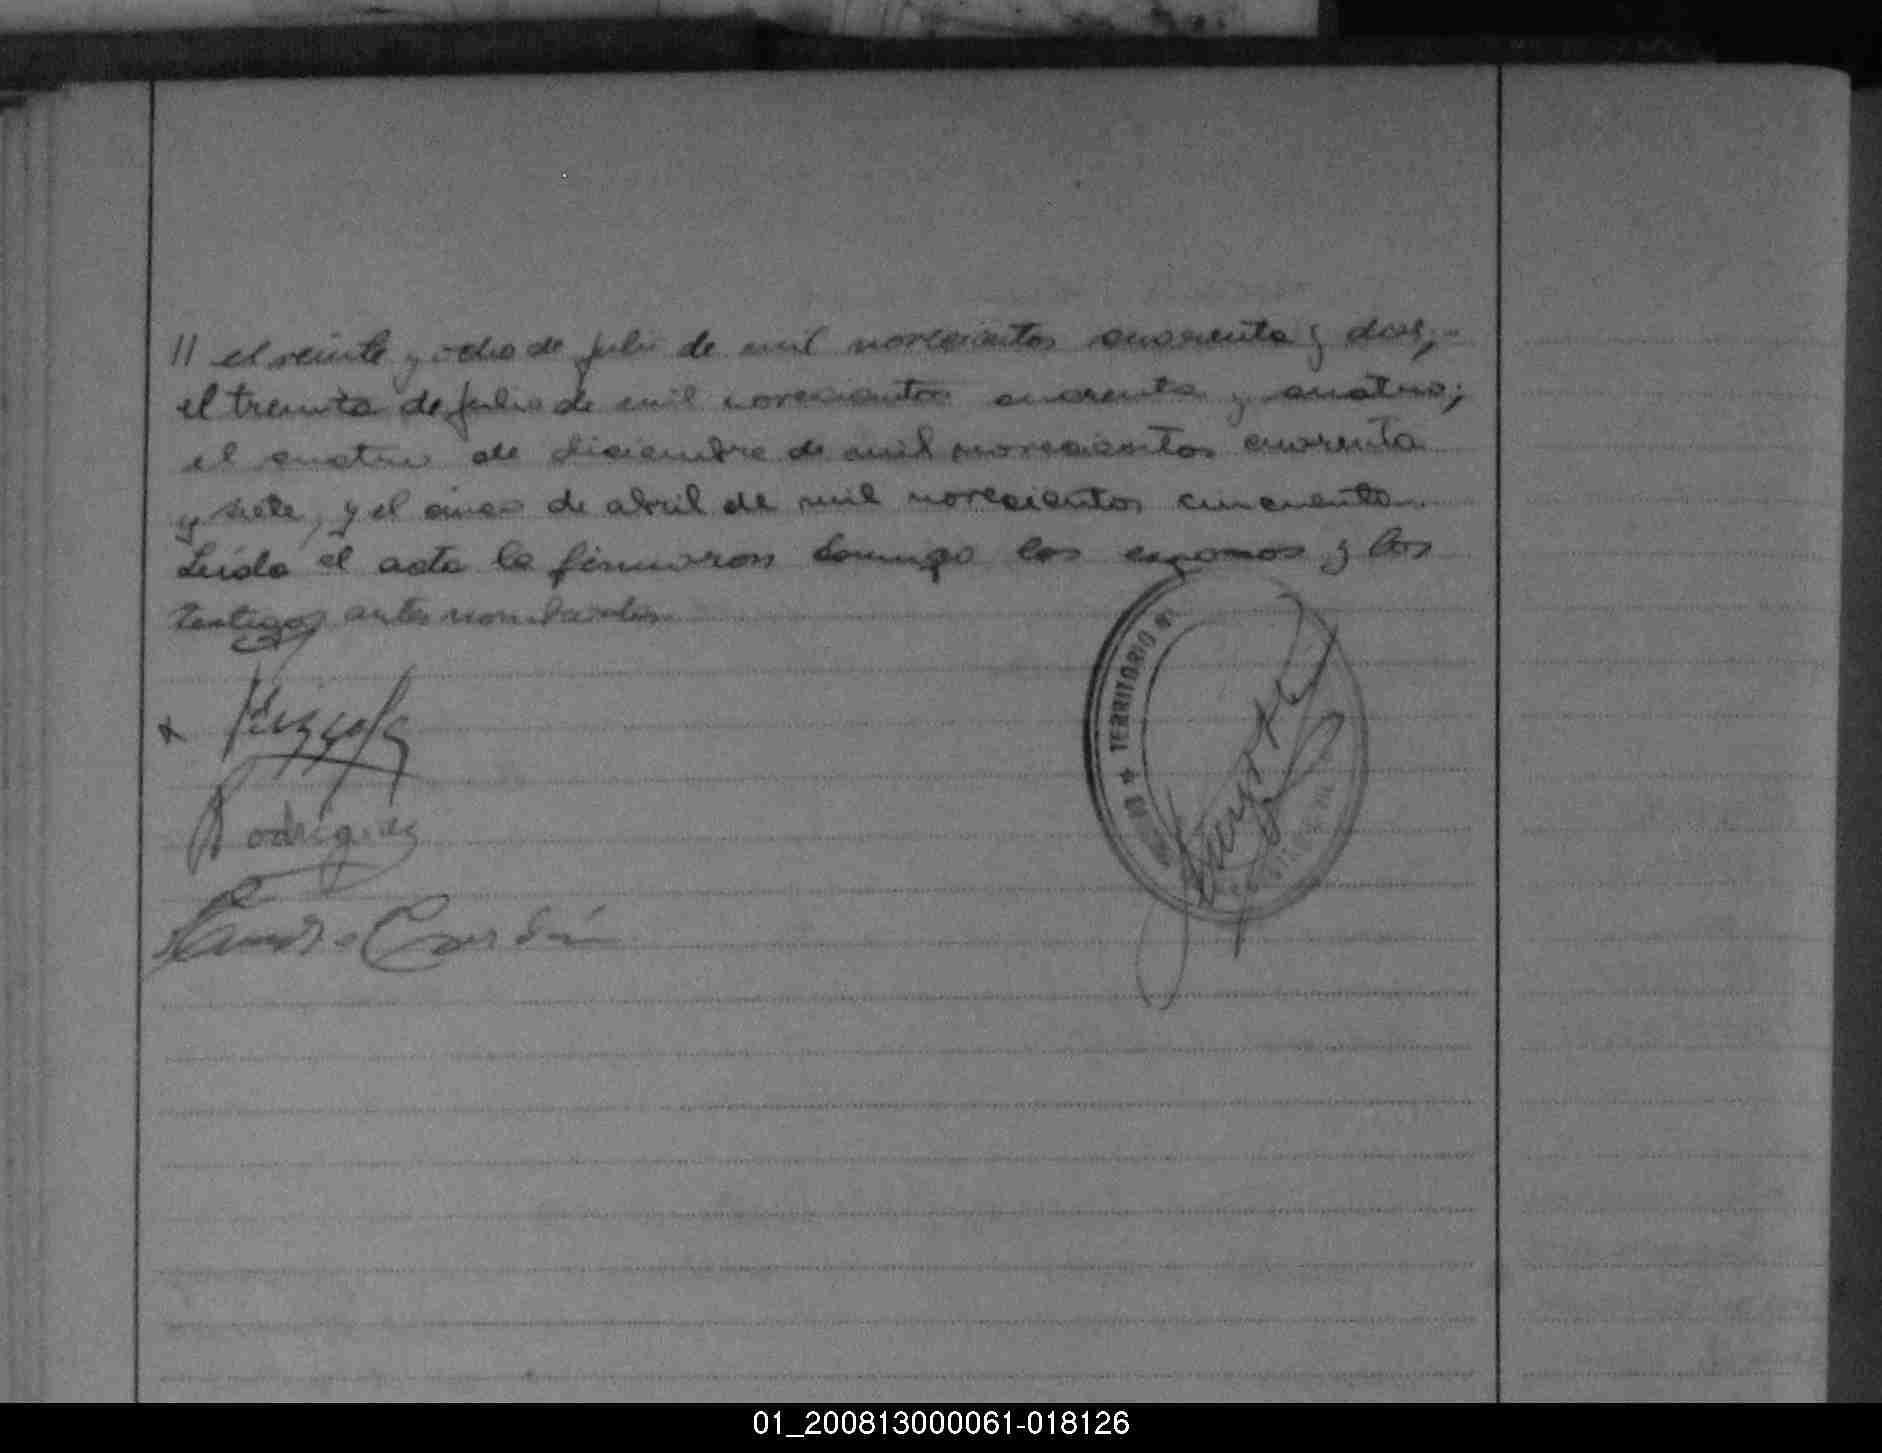 // el veinte y ocho de julio de mil novecientos cuarenta y dos;
el treinta de julio de mil novecientos cuarenta y cuatro;
el cuatro de diciembre de mil novecientos cuarenta
y siete, y el cinco de abril de mil novecientos cincuenta.
Leída el acta la firmaron conmigo los esposos y los
testigos antes nombrados
Rodriguez
TERRITORIO
01_200813000061-018126